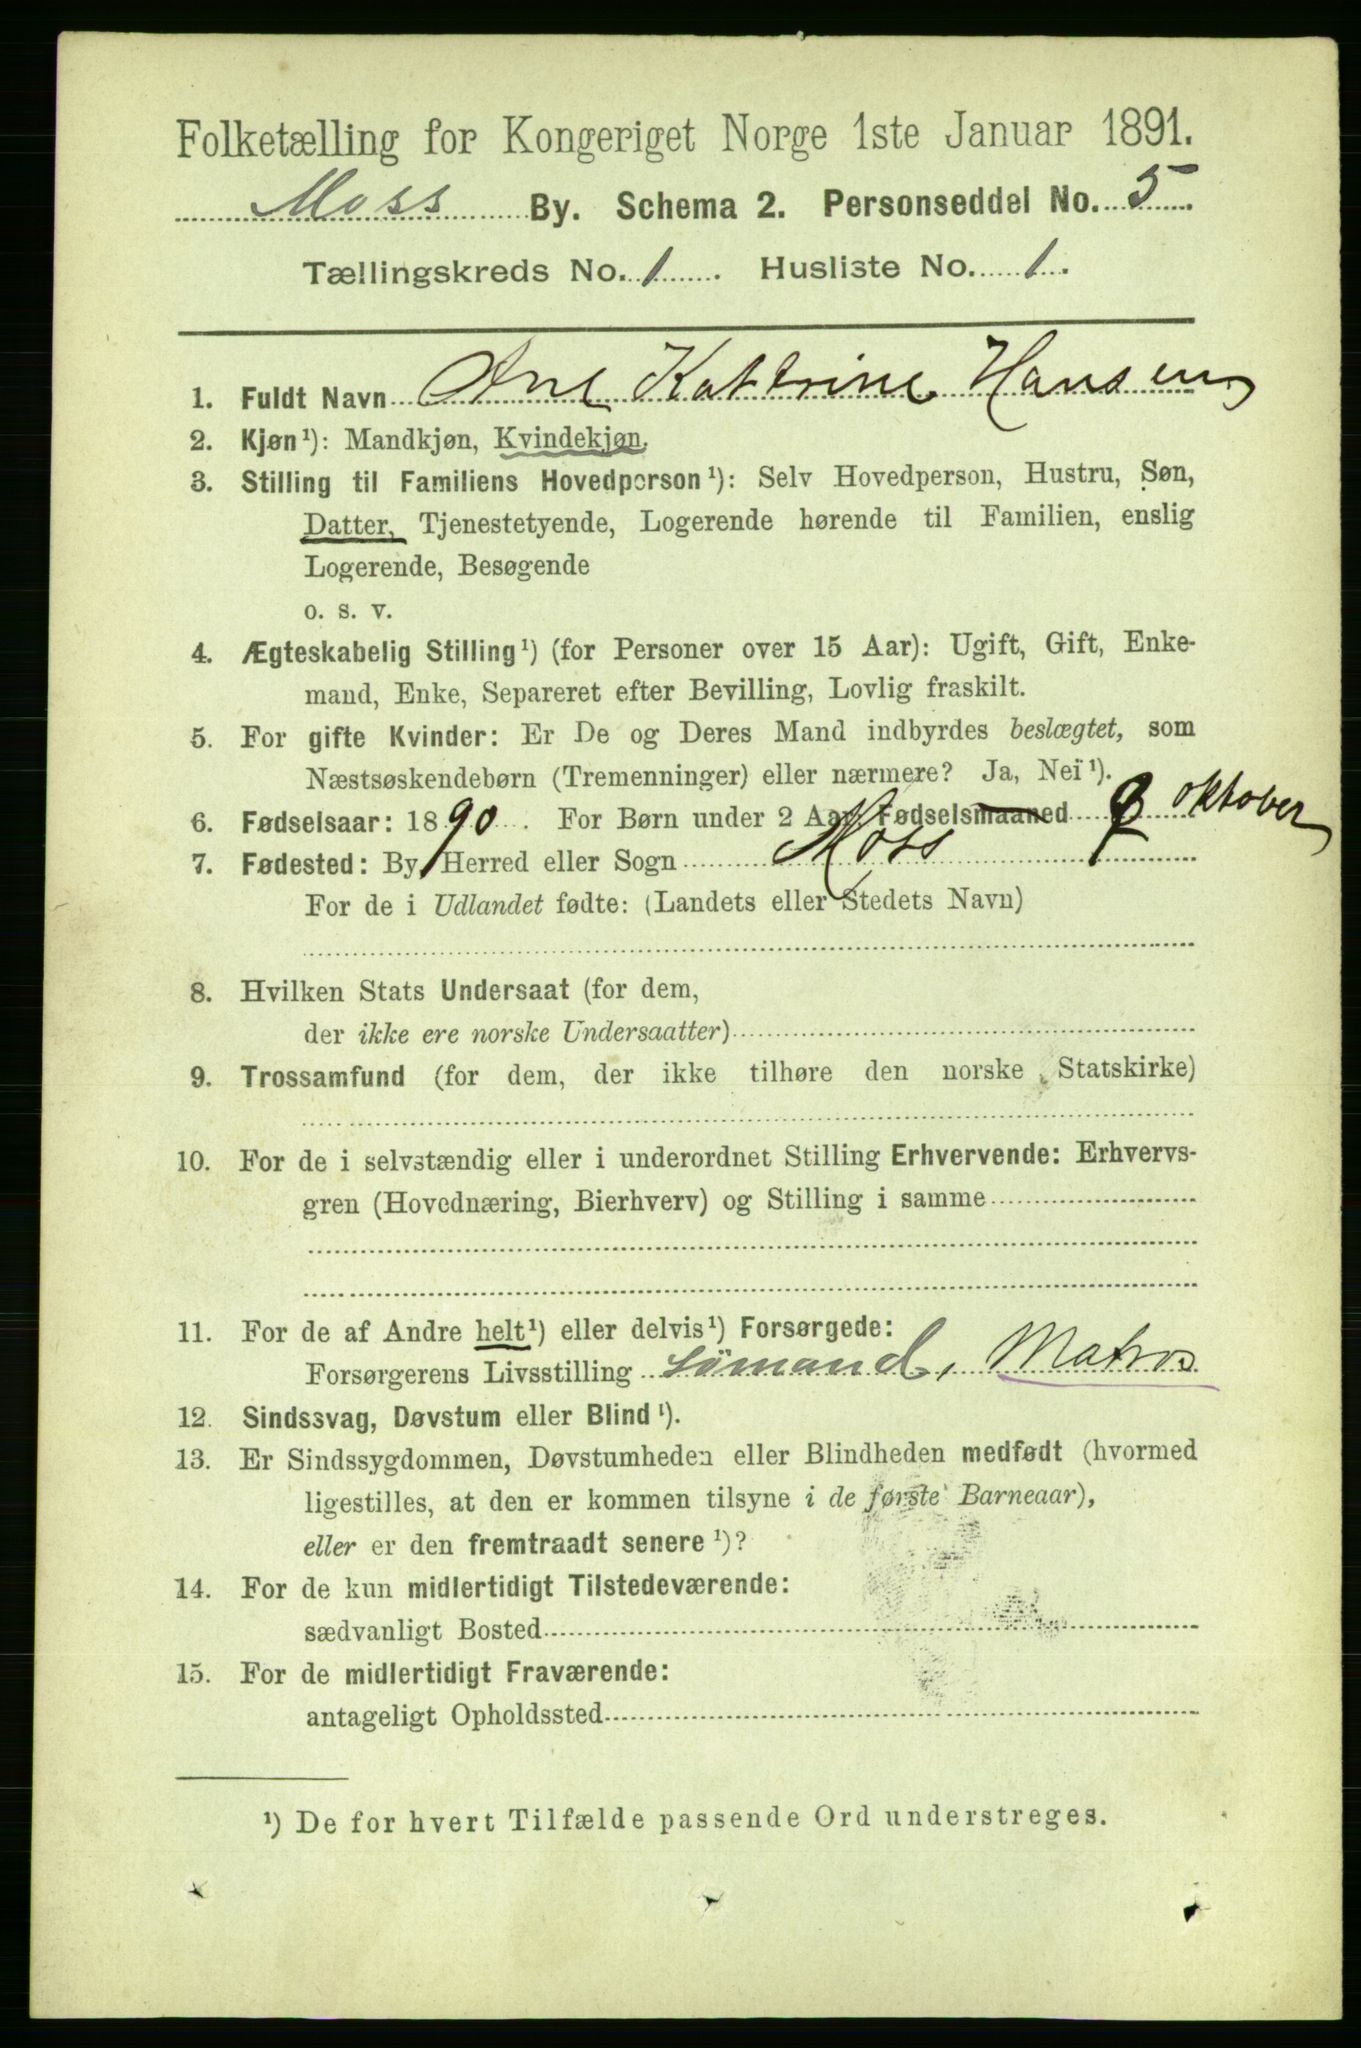 Folketælling for Kongeriget Norge 1ste Januar 1891.
Moss By. Schema 2. Personseddel No. 5.
Tællingskreds No. 1. Husliste No. 1.
1. Fuldt Navn Ane Kattrine Hansen
2. Kjøn¹): Mandkjøn, Kvindekjøn.
3. Stilling til Familiens Hovedperson¹): Selv Hovedperson, Hustru, Søn,
Datter, Tjenestetyende, Logerende hørende til Familien, enslig
Logerende, Besøgende
o. s. v.
4. Ægteskabelig Stilling¹) (for Personer over 15 Aar): Ugift, Gift, Enke-
mand, Enke, Separeret efter Bevilling, Lovlig fraskilt.
5. For gifte Kvinder: Er De og Deres Mand indbyrdes beslægtet, som
Næstsøskendebørn (Tremenninger) eller nærmere? Ja, Nei¹).
6. Fødselsaar: 1890. For Børn under 2 Aar: Fødselsmaaned oktober
7. Fødested: By, Herred eller Sogn Moss
For de i Udlandet fødte: (Landets eller Stedets Navn)
8. Hvilken Stats Undersaat (for dem,
der ikke ere norske Undersaatter)
9. Trossamfund (for dem, der ikke tilhøre den norske Statskirke)
10. For de i selvstændig eller i underordnet Stilling Erhvervende: Erhvervs-
gren (Hovednæring, Bierhverv) og Stilling i samme
11. For de af Andre helt¹) eller delvis¹) Forsørgede:
Forsørgerens Livsstilling sömand, Matros
12. Sindssvag, Døvstum eller Blind¹).
13. Er Sindssygdommen, Døvstumheden eller Blindheden medfødt (hvormed
ligestilles, at den er kommen tilsyne i de første Barneaar),
eller er den fremtraadt senere¹)?
14. For de kun midlertidigt Tilstedeværende:
sædvanligt Bosted
15. For de midlertidigt Fraværende:
antageligt Opholdssted
¹) De for hvert Tilfælde passende Ord understreges.